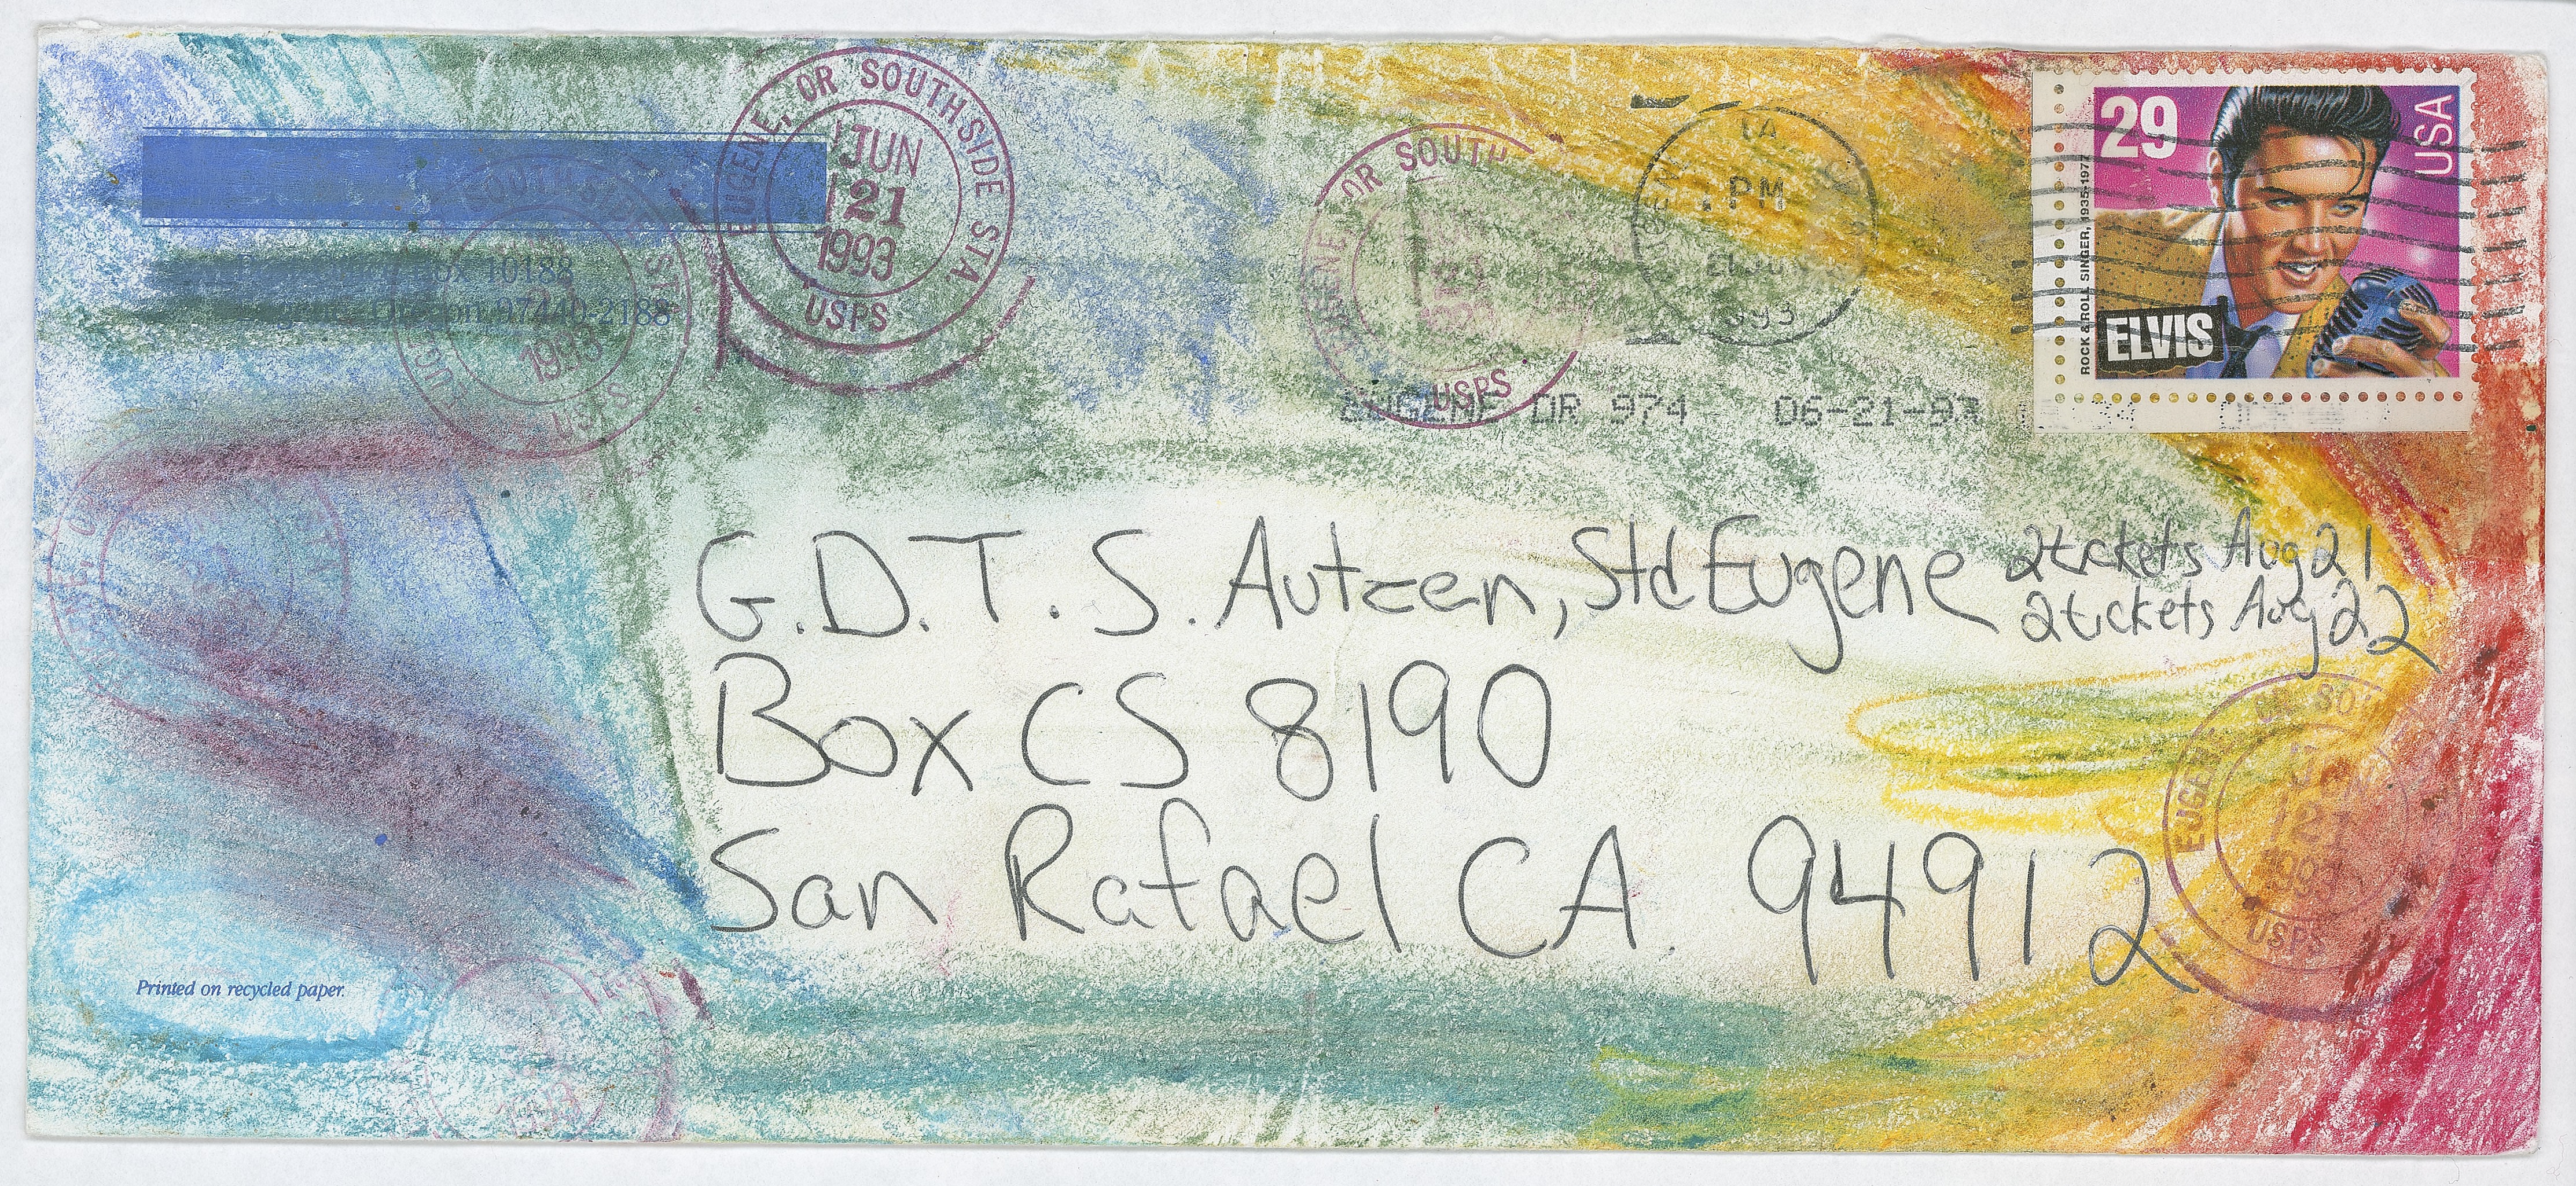 EUGENE, OR SOUTHSIDE STA
JUN
21
1993
USPS
10188
97440-2188
1993
OR SOUTH
USPS
PM
EUGENE OR 974 06-21-93
29
USA
ELVIS
ROCK & ROLL SINGER, 1935-1977
G.D.T.S. Autzen, Std Eugene
2 tickets Aug 21
2 tickets Aug 22
Box CS 8190
San Rafael CA. 94912
EUGENE
USPS
Printed on recycled paper.